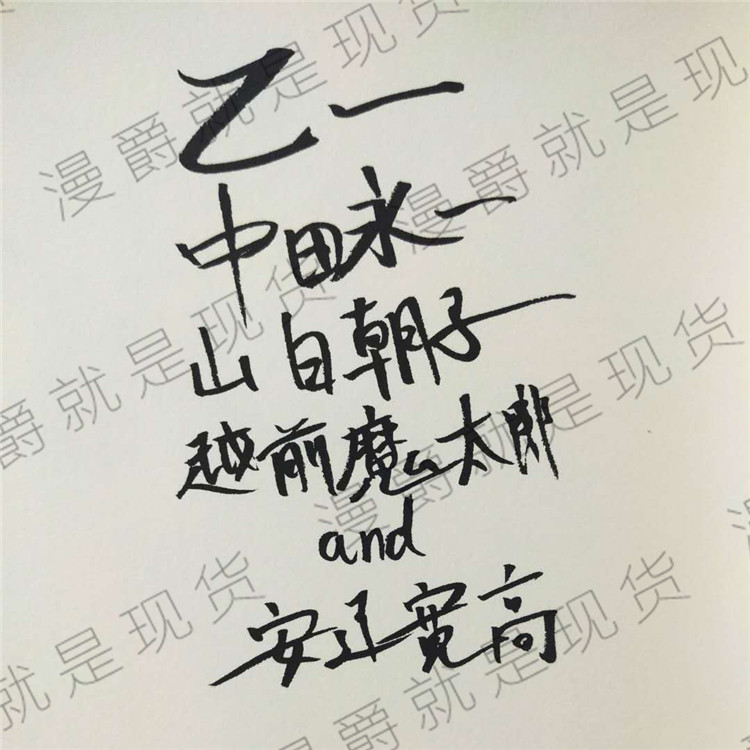 乙一
中田永一
山白朝子
越前魔太郎
and
安达寛高
漫爵就是现货
漫爵就是现货
漫爵就是现货
漫爵就是现货
漫爵就是现货
漫爵就是现货
漫爵就是现货